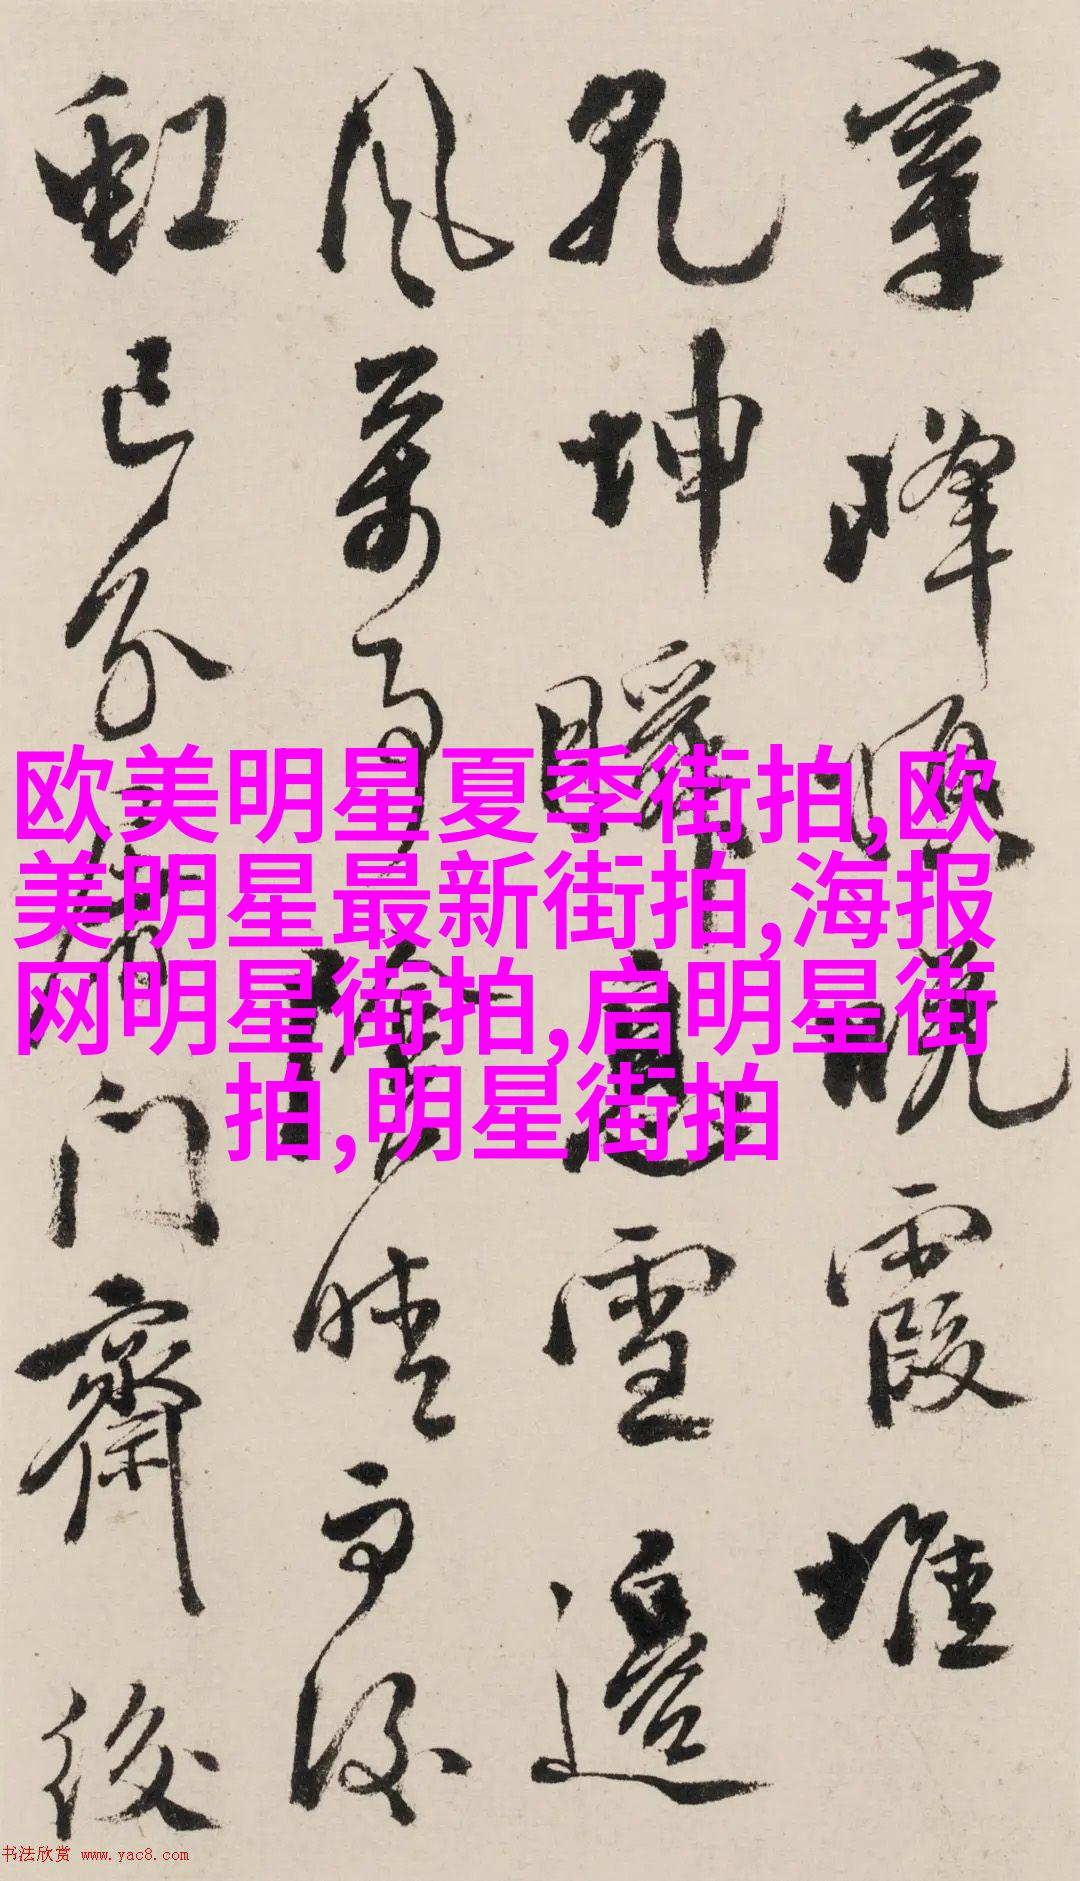 峰隱晚霞堆
乾坤瞬息雪邊
風萬事陰晴雨後
虹已分屠門齋後
欧美明星夏季街拍,欧
美明星最新街拍,海报
网明星街拍,启明星街
拍,明星街拍
书法欣赏 www.yac8.com